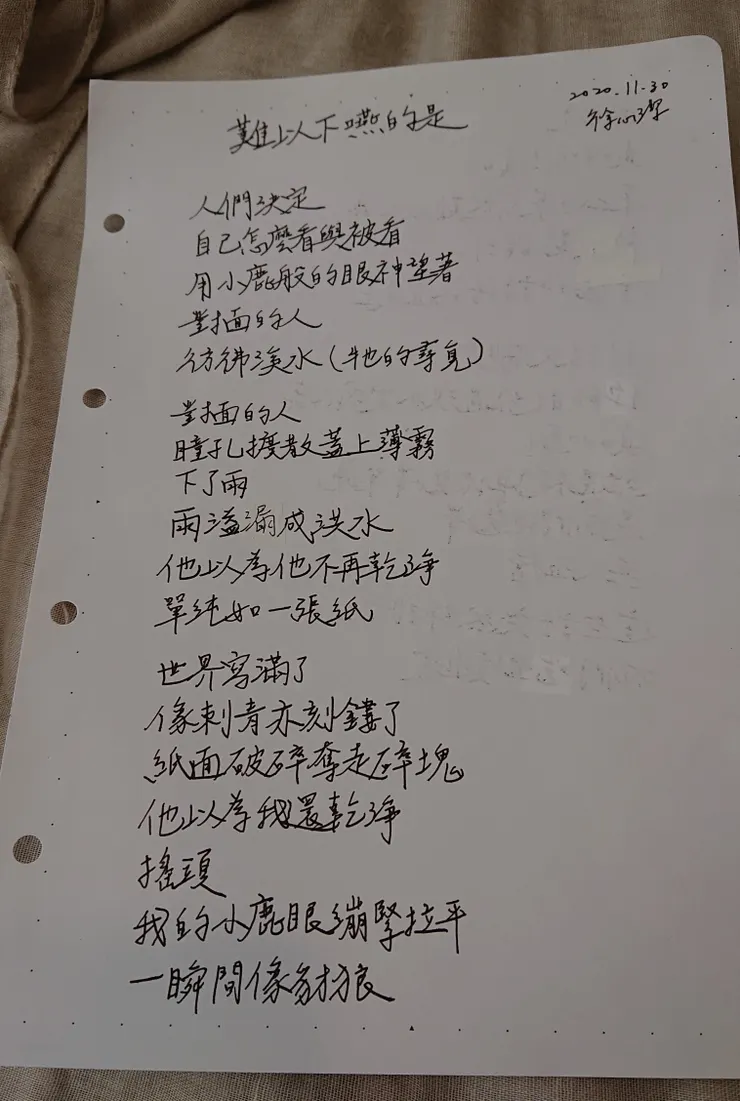 2020.11.30
徐心潔
難以下嚥的是
人們決定
自己怎麼看與被看
用小鹿般的眼神望著
對面的人
彷彿淡水(牠的尋覓)
對面的人
瞳孔擴散蓋上薄霧
下了雨
雨溢漏成洪水
他以為他不再乾淨
單純如一張紙
世界寫滿了
像刺青亦刻鏤了
紙面破碎奪走碎塊
他以為我還乾淨
搖頭
我的小鹿眼繃緊拉平
一瞬間像豺狼